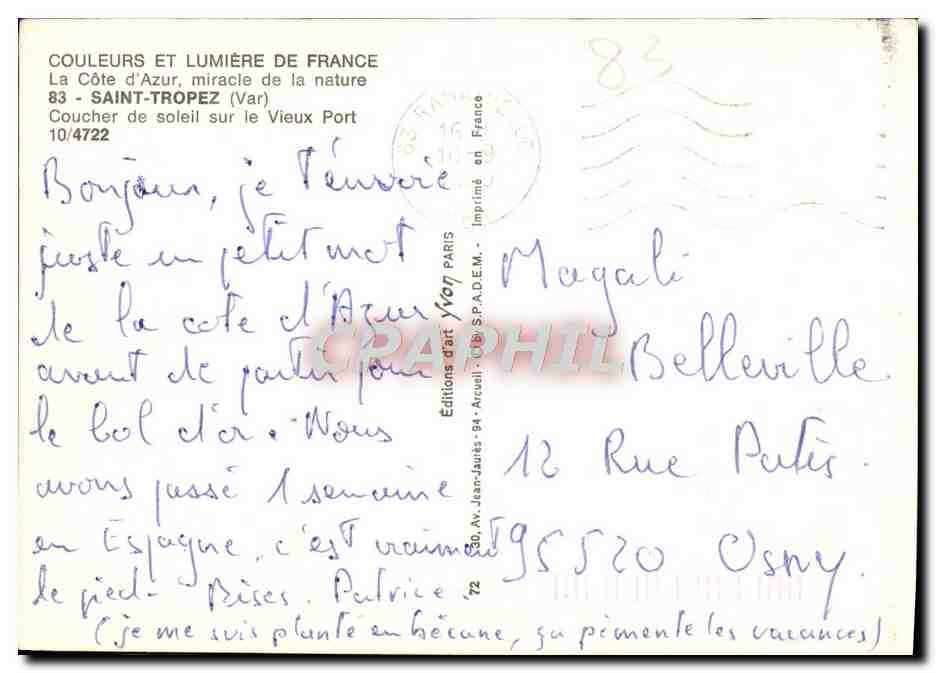 COULEURS ET LUMIÈRE DE FRANCE
La Côte d'Azur, miracle de la nature
83 - SAINT-TROPEZ (Var)
Coucher de soleil sur le Vieux Port
10/4722
Bonjour, je t'envoie
juste un petit mot
de la cote d'Azur
avant de partir pour
le bol d'or. Nous
avons passé 1 semaine
en Espagne, c'est vraiment
le pied. Bises. Patrice.
(je me suis planté en bécane, ça pimente les vacances)
Éditions d'art Yvon PARIS
72 30, Av. Jean-Jaurès - 94 - Arcueil - © by S.P.A.D.E.M. - Imprimé en France
83
83 16
Magali
Belleville
12 Rue Patis.
95520 Osny.
CPAPHIL